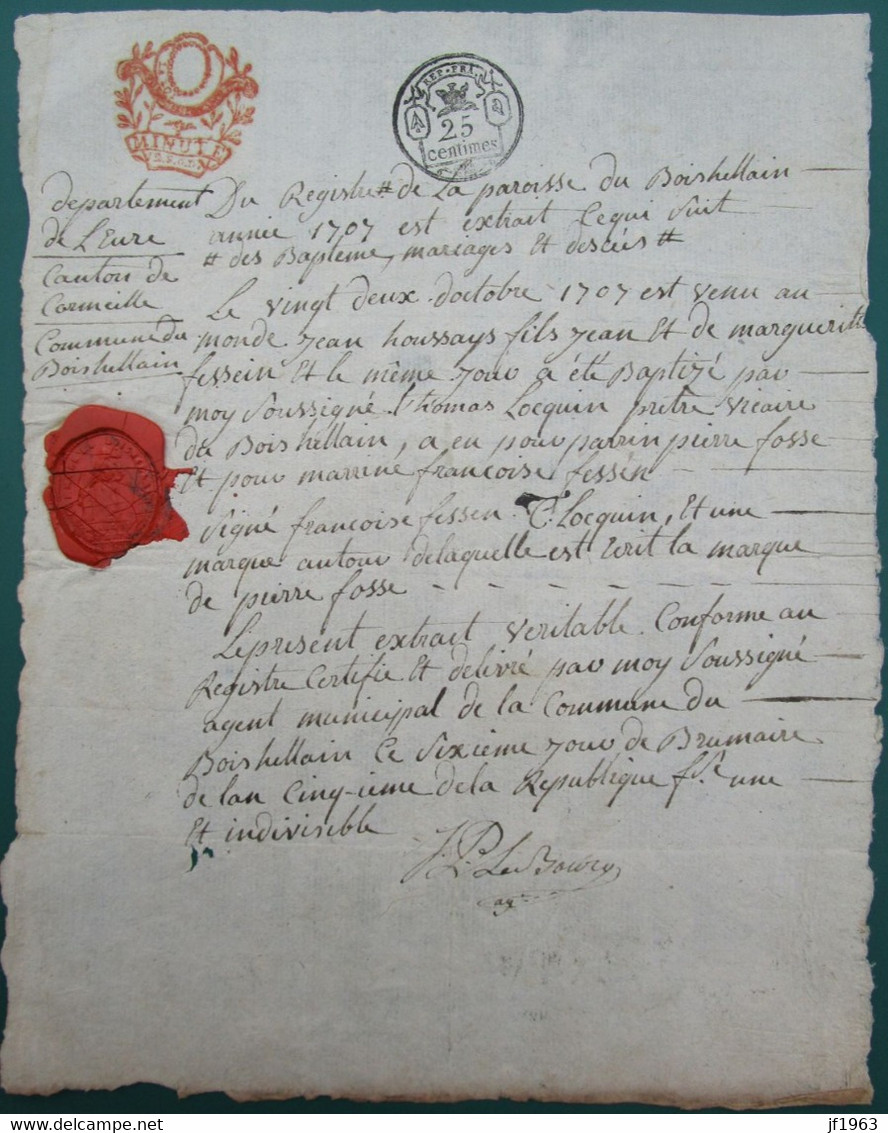 MINUTE
REP. FRA.
25
centimes
departement
de L'Eure
Canton de
Cormeille
Commune du
Boishellain
Du Registre # de La paroisse du Boishellain
année 1707 est extrait Cequi suit
# des Bapteme, mariages Et descéés #
Le vingt deux doctobre 1707 est venu au
monde jean houssays fils jean Et de marguerite
fessein Et le même jour a été Baptizé par
moy soussigné Thomas Locquin prêtre vicaire
du Boishellain, a eu pour parrin pierre fosse
Et pour marrine francoise fessen
signé francoise fessen. T. Locquin, Et une
marque autour delaquelle est Ecrit la marque
de pierre fosse
Le present extrait veritable Conforme au
Registre Certifie Et délivré par moy soussigné
agent municipal de la Commune du
Boishellain Ce sixieme jour de Brumaire
de lan Cinq-ieme dela Republique fse une
Et indivisible
J. P. Le
agt
delcampe.net
jf1963